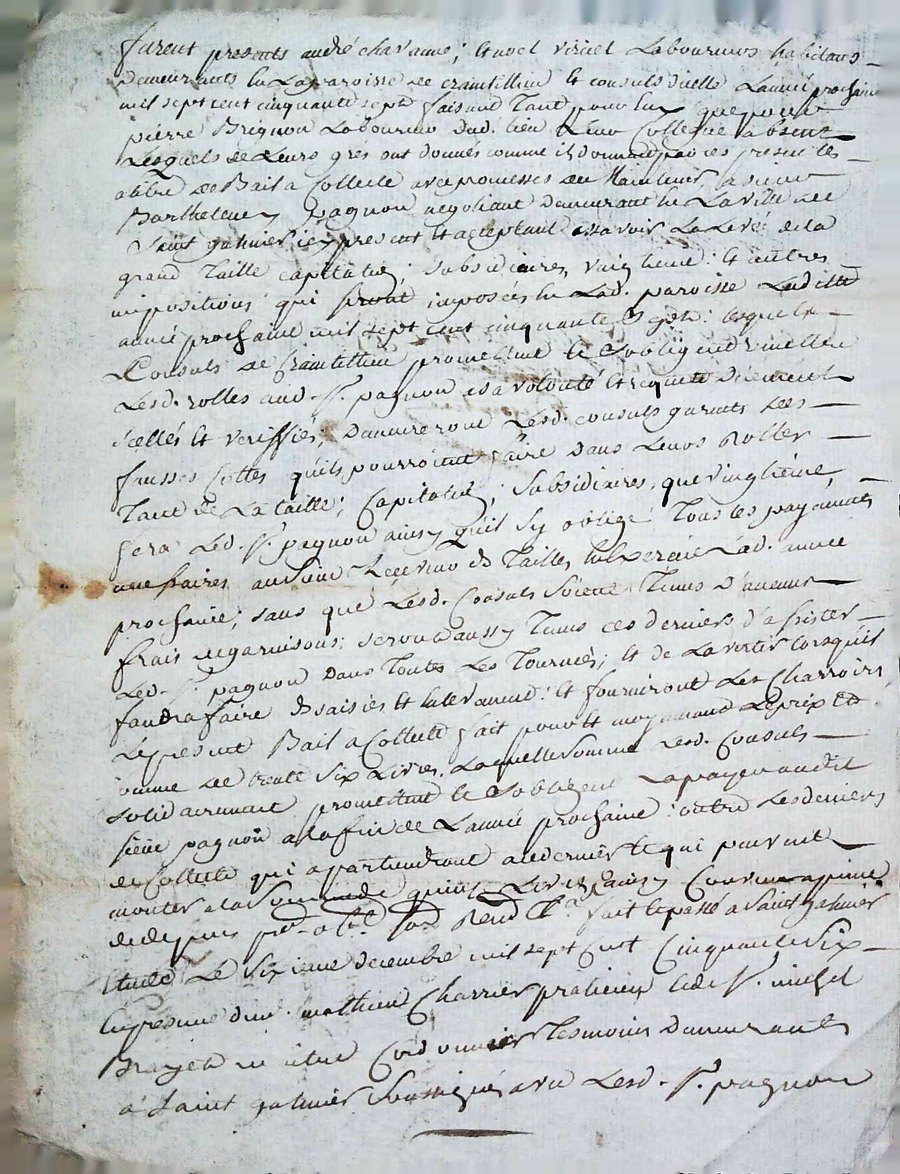 furent presents andré chavanne ; & noel viriel Laboureurs habitans
demeurants en La paroisse de craintillieu & consuls d'icelle L'année prochaine
mil sept cent cinquante sept faisant Tant pour Eux que pour
pierre Brignon Laboureur dud. lieu Leur Collegue absent
Lesquels de Leurs grés ont donnés comme ils donnent par ces presentes
a titre de Bail a Collecte avec promesses de Maintenir, a sieur
Barthelemy pagnon negotiant demeurant en La ville de
Saint galmier icy present & acceptant assavoir La Levée de la
grand Taille capitation, subsidiaires, vingtieme : & autres
impositions qui seront imposées en Lad. paroisse Laditte
année prochaine mil sept cent cinquante & sept : Lesquels
Consuls de Craintillieu promettent & s'obligent remettre
Lesd. rolles aud. Sr. pagnon a sa volonté & requete duement
scellés & veriffiés, demeureront Lesd. consuls garents des
fausses Cottes qu'ils pourroient faire dans Leurs Rolles
Tant de La taille ; Capitation ; subsidiaires, que vingtieme,
fera Led. Sr. pagnon ainsy qu'il s'y oblige Tous les payements
necessaires au sieur Receveur des Tailles en exercice Lad. année
prochaine, sans que Lesd. Consuls soient Tenus d'aucuns
frais de garnisons ; seront aussy Tenus ces derniers d'assister
Led. Sr. pagnon dans Toutes Les Tournées ; & de L'avertir Lorsqu'il
faudra faire des saisies & Enlevement : & fourniront Les Charrois
Le present Bail a Collecte fait pour & moyenant Le prix Et
somme de trente six Livres, Laquelle somme Lesd. Consuls
solidairement promettent & s'obligent La payer audit
sieur pagnon a la fin de L'année prochaine : outre Les deniers
de Collecte qui apartiendront a ce dernier & qui peuvent
monter a la somme de quinze Livres, ainsy Convenu a peine
de depens fait & passé a Saint galmier
Etude Le sixieme decembre mil sept cent Cinquante Six
En presence de me. mathieu Charrier praticien & de Sr. michel
Brayet me Cordonnier Tesmoins demeurants
a Saint galmier Soussignés avec Lesd. Sr. pagnon